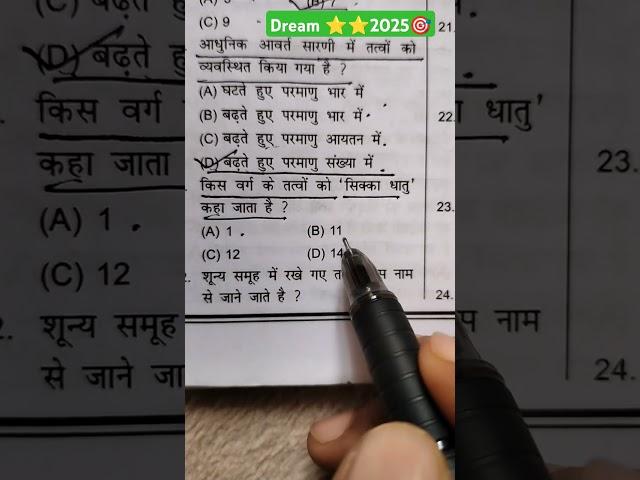 Dream ⭐⭐2025🎯
(C) 9
आधुनिक आवर्त सारणी में तत्वों को
व्यवस्थित किया गया है ?
(A) घटते हुए परमाणु भार में
(B) बढ़ते हुए परमाणु भार में
(C) बढ़ते हुए परमाणु आयतन में.
(D) बढ़ते हुए परमाणु संख्या में.
किस वर्ग के तत्वों को 'सिक्का धातु'
कहा जाता है ?
(A) 1 (B) 11
(C) 12 (D) 14
शून्य समूह में रखे गए नाम
से जाने जाते है ?
21.
22.
23.
24.
(D) बढ़ते
किस वर्ग
कहा जाता
(A) 1
(C) 12
शून्य समूह
से जाने जा
धातु'
23.
नाम
24.